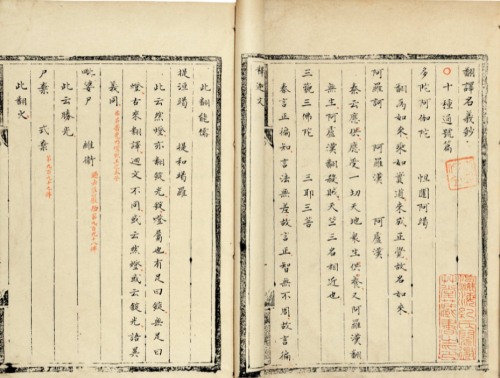 翻譯名義鈔
十種通號篇
多陀阿伽陀　怛闥阿竭
翻為如來如實道來成正覺故名如來
阿羅訶　阿羅漢　阿盧漢
秦云應供應受一切天地眾生供養又阿羅漢翻
無生阿盧漢翻殺賊天竺三名相近也
三藐三佛陀　三耶三菩
秦言正徧知言法無差故言正智無不周故言徧
釋迦文
此翻能儒
提洹竭　提和竭羅
此云然燈亦翻錠光錠燈屬也有足曰錠無足曰
燈古來翻譯迴文不同或云然燈或云錠光語異
義同
毗婆尸　維衛
此云勝光
尸棄　式棄
此翻火